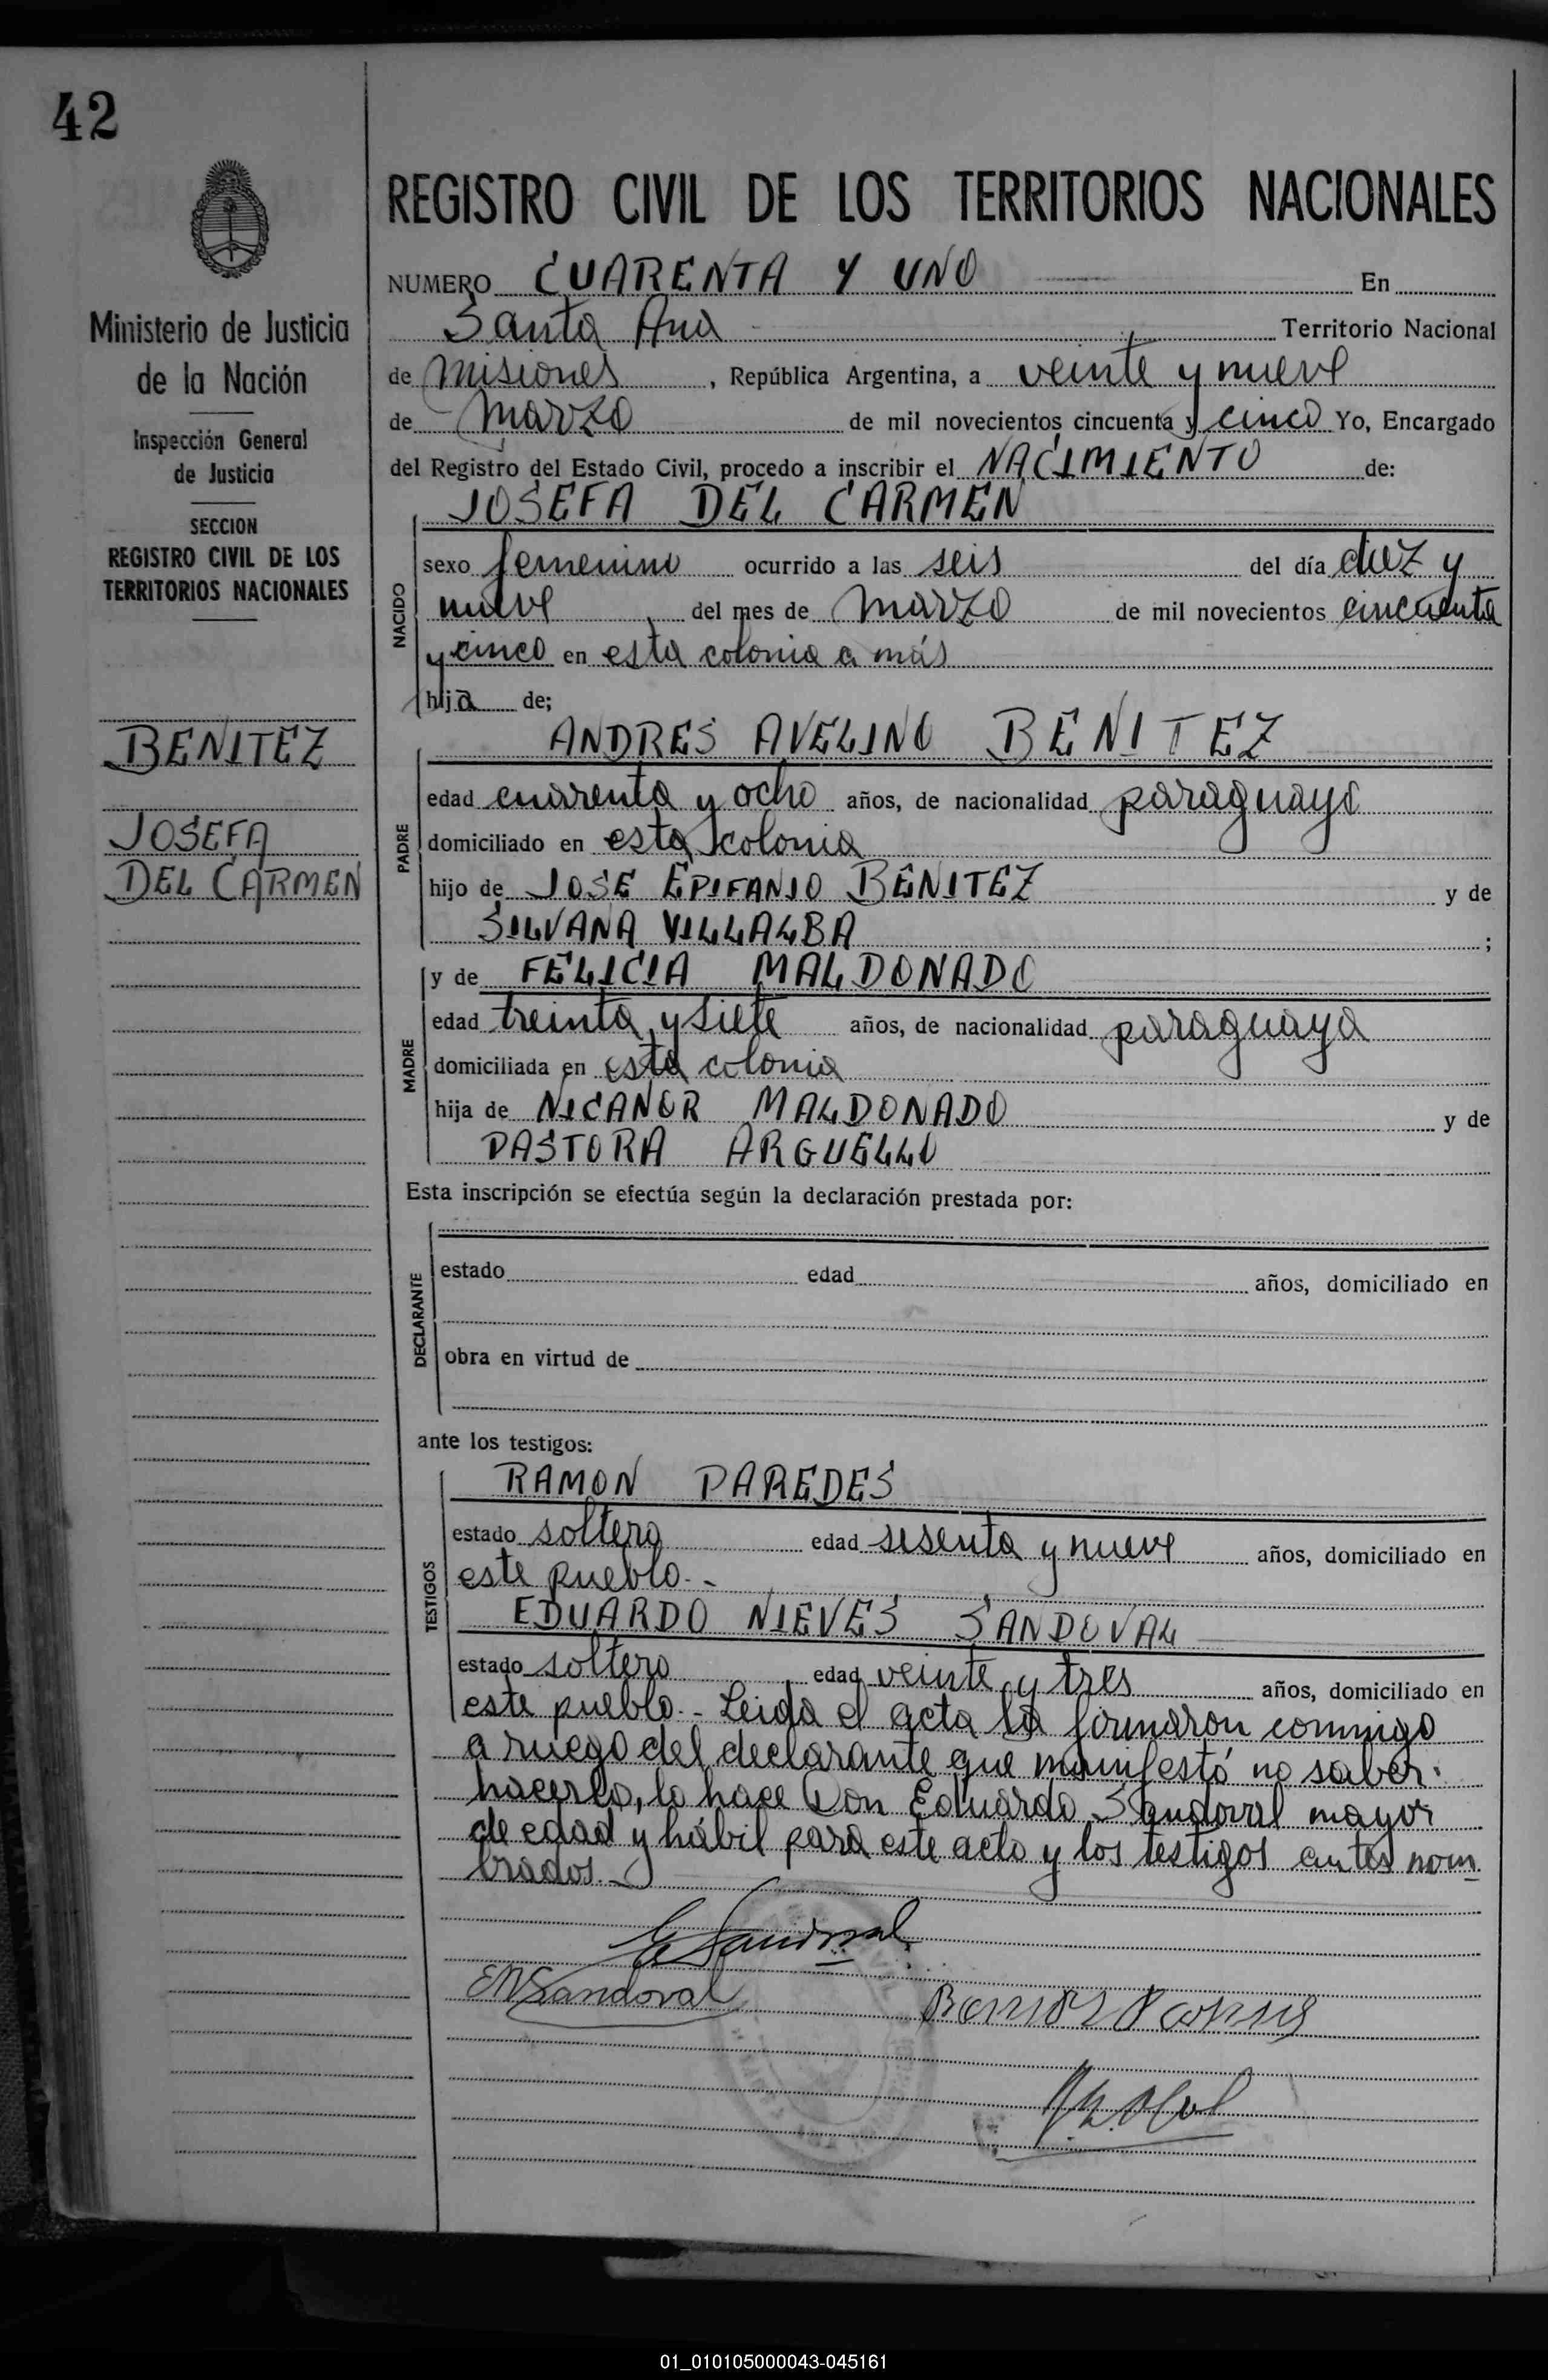 42
REGISTRO CIVIL DE LOS TERRITORIOS NACIONALES
Ministerio de Justicia
de la Nación
Inspección General
de Justicia
SECCION
REGISTRO CIVIL DE LOS
TERRITORIOS NACIONALES
BENITEZ
JOSEFA
DEL CARMEN
NUMERO CUARENTA Y UNO En
Santa Ana Territorio Nacional
de Misiones, República Argentina, a veinte y nueve
de Marzo de mil novecientos cincuenta y cinco Yo, Encargado
del Registro del Estado Civil, procedo a inscribir el NACIMIENTO de:
NACIDO
JOSEFA DEL CARMEN
sexo femenino ocurrido a las seis del día diez y
nueve del mes de Marzo de mil novecientos cincuenta
y cinco en esta colonia a más
hija de;
PADRE
ANDRES AVELINO BENITEZ
edad cuarenta y ocho años, de nacionalidad paraguayo
domiciliado en esta colonia
hijo de JOSE EPIFANIO BENITEZ y de
SILVANA VILLALBA ;
MADRE
y de FELICIA MALDONADO
edad treinta y siete años, de nacionalidad paraguaya
domiciliada en esta colonia
hija de NICANOR MALDONADO y de
PASTORA ARGUELLO
Esta inscripción se efectúa según la declaración prestada por:
DECLARANTE
estado edad años, domiciliado en
obra en virtud de
ante los testigos:
TESTIGOS
RAMON PAREDES
estado soltero edad sesenta y nueve años, domiciliado en
este pueblo.-
EDUARDO NIEVES SANDOVAL
estado soltero edad veinte y tres años, domiciliado en
este pueblo.- Leida el acta la firmaron conmigo
a ruego del declarante que manifestó no saber
hacerlo, lo hace Don Eduardo Sandoval mayor
de edad y hábil para este acto y los testigos antes nom
brados.-
E Sandoval
EN Sandoval
01_010105000043-045161